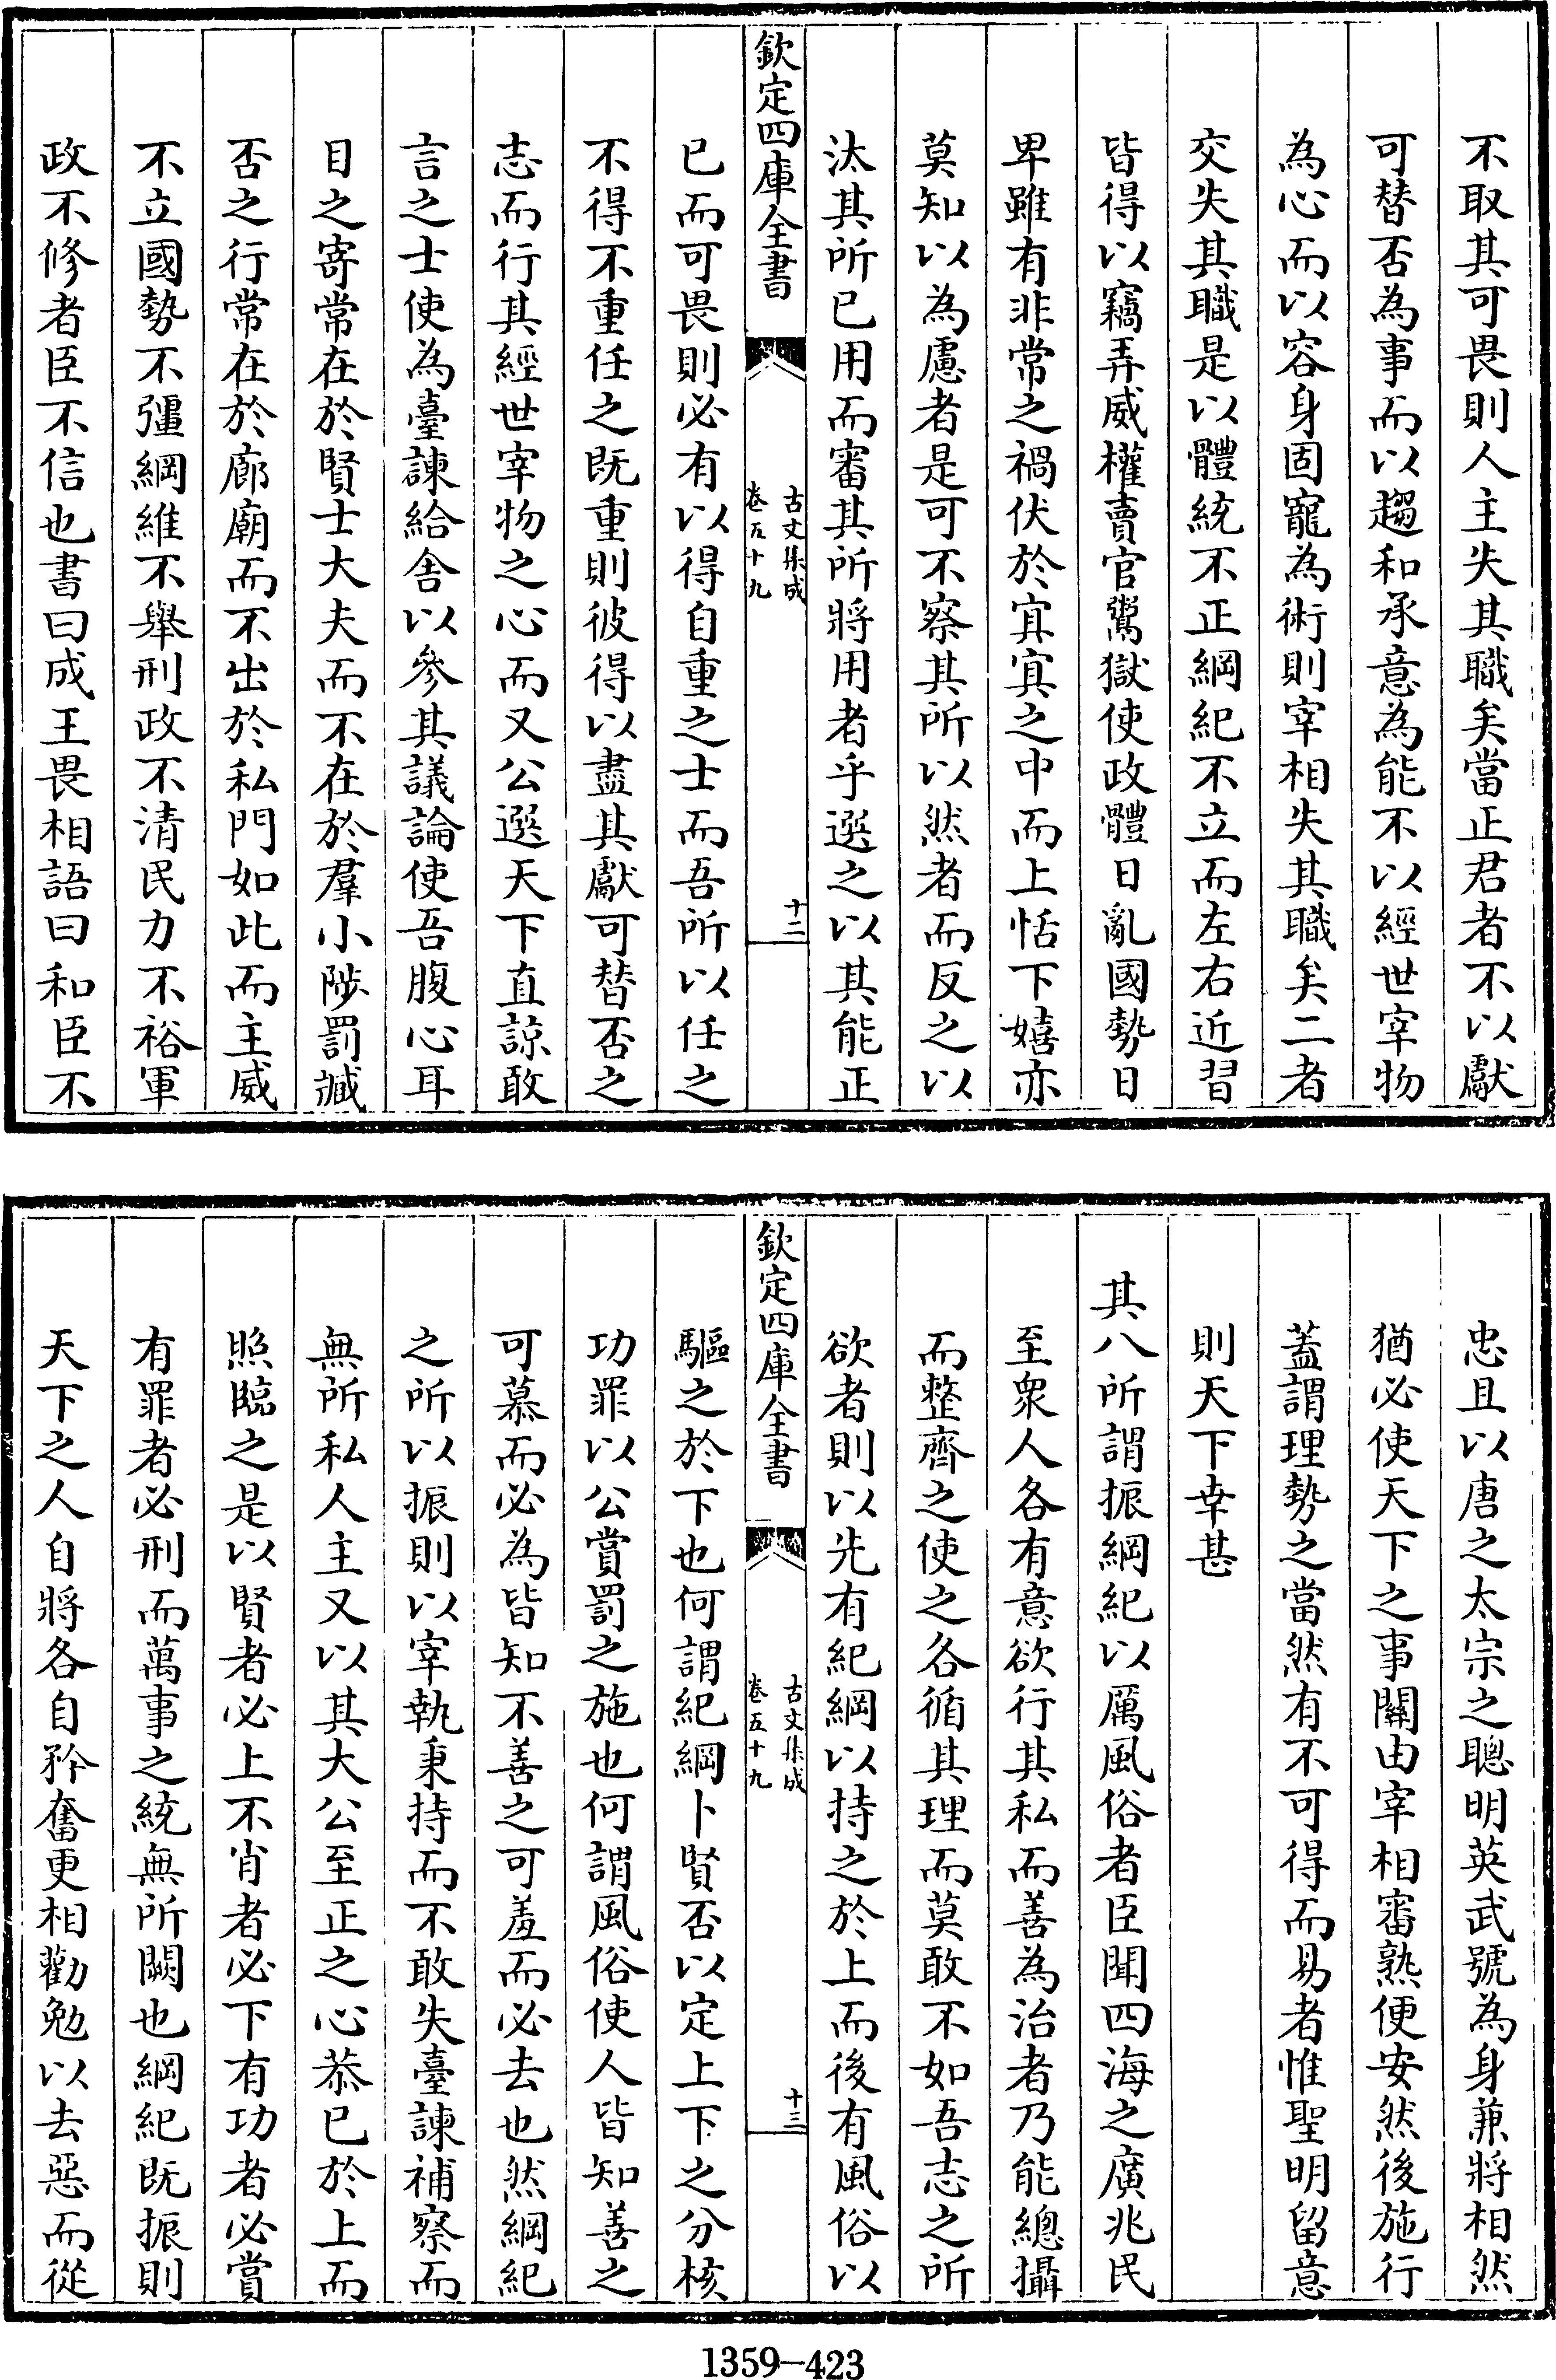 不取其可畏則人主失其職矣當正君者不以獻
可替否為事而以趨和承意為能不以經世宰物
為心而以容身固寵為術則宰相失其職矣二者
交失其職是以體統不正綱紀不立而左右近習
皆得以竊弄威權賣官鬻獄使政體日亂國勢日
卑雖有非常之禍伏於冥冥之中而上恬下嬉亦
莫知以為慮者是可不察其所以然者而反之以
汰其所已用而審其所將用者乎選之以其能正
欽定四庫全書
古文集成
卷五十九
十二
已而可畏則必有以得自重之士而吾所以任之
不得不重任之既重則彼得以盡其獻可替否之
志而行其經世宰物之心而又公選天下直諒敢
言之士使為臺諫給舍以參其議論使吾腹心耳
目之寄常在於賢士大夫而不在於羣小陟罰臧
否之行常在於廊廟而不出於私門如此而主威
不立國勢不彊綱維不舉刑政不清民力不裕軍
政不修者臣不信也書曰成王畏相語曰和臣不
忠且以唐之太宗之聰明英武號為身兼將相然
猶必使天下之事關由宰相審熟便安然後施行
蓋謂理勢之當然有不可得而易者惟聖明留意
則天下幸甚
其八所謂振綱紀以厲風俗者臣聞四海之廣兆民
至衆人各有意欲行其私而善為治者乃能總攝
而整齊之使之各循其理而莫敢不如吾志之所
欲者則以先有紀綱以持之於上而後有風俗以
欽定四庫全書
古文集成
卷五十九
十三
驅之於下也何謂紀綱卜賢否以定上下之分核
功罪以公賞罰之施也何謂風俗使人皆知善之
可慕而必為皆知不善之可羞而必去也然綱紀
之所以振則以宰執秉持而不敢失臺諫補察而
無所私人主又以其大公至正之心恭已於上而
照臨之是以賢者必上不肖者必下有功者必賞
有罪者必刑而萬事之統無所闕也綱紀既振則
天下之人自將各自矜奮更相勸勉以去惡而從
1359-423